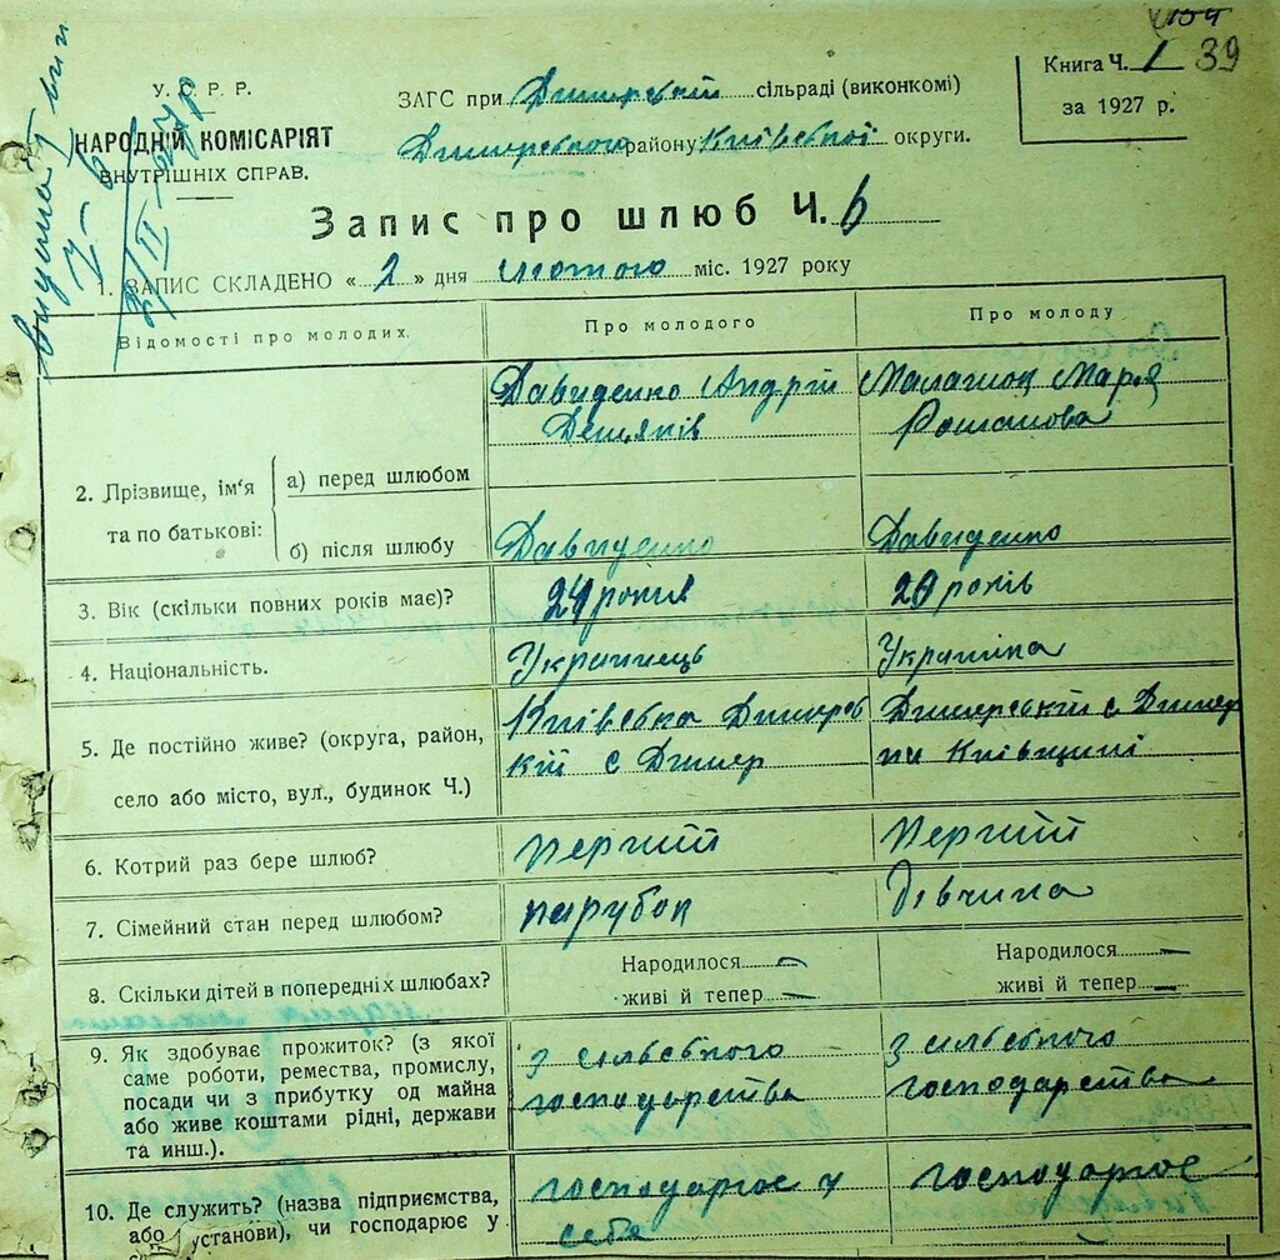 39
У. С. Р. Р.
НАРОДНІЙ КОМІСАРІЯТ
ВНУТРІШНІХ СПРАВ.
ЗАГС при Димерській сільраді (виконкомі)
Димерського району Київської округи.
Книга Ч. 1
за 1927 р.
Запис про шлюб Ч. 6
1. ЗАПИС СКЛАДЕНО « 2 » дня лютого міс. 1927 року
Відомості про молодих.
Про молодого
Про молоду
2. Прізвище, ім'я та по батькові:
а) перед шлюбом
Давиденко Андрій
Демянів
Малашок Марія
Романова
б) після шлюбу
Давиденко
Давиденко
3. Вік (скільки повних років має)?
24 років
20 років
4. Національність.
Українець
Українка
5. Де постійно живе? (округа, район,
село або місто, вул., будинок Ч.)
Київська Димерсь
кій с Димер
Димерській с Димер
на Київщині
6. Котрий раз бере шлюб?
перший
перший
7. Сімейний стан перед шлюбом?
парубок
дівчина
8. Скільки дітей в попередніх шлюбах?
Народилося —
живі й тепер —
Народилося —
живі й тепер —
9. Як здобуває прожиток? (з якої
саме роботи, ремества, промислу,
посади чи з прибутку од майна
або живе коштами рідні, держави
та инш.).
з сільського
господарства
з сільського
господарства
10. Де служить? (назва підприємства,
або установи), чи господарює у
господарює у
себе
господарює